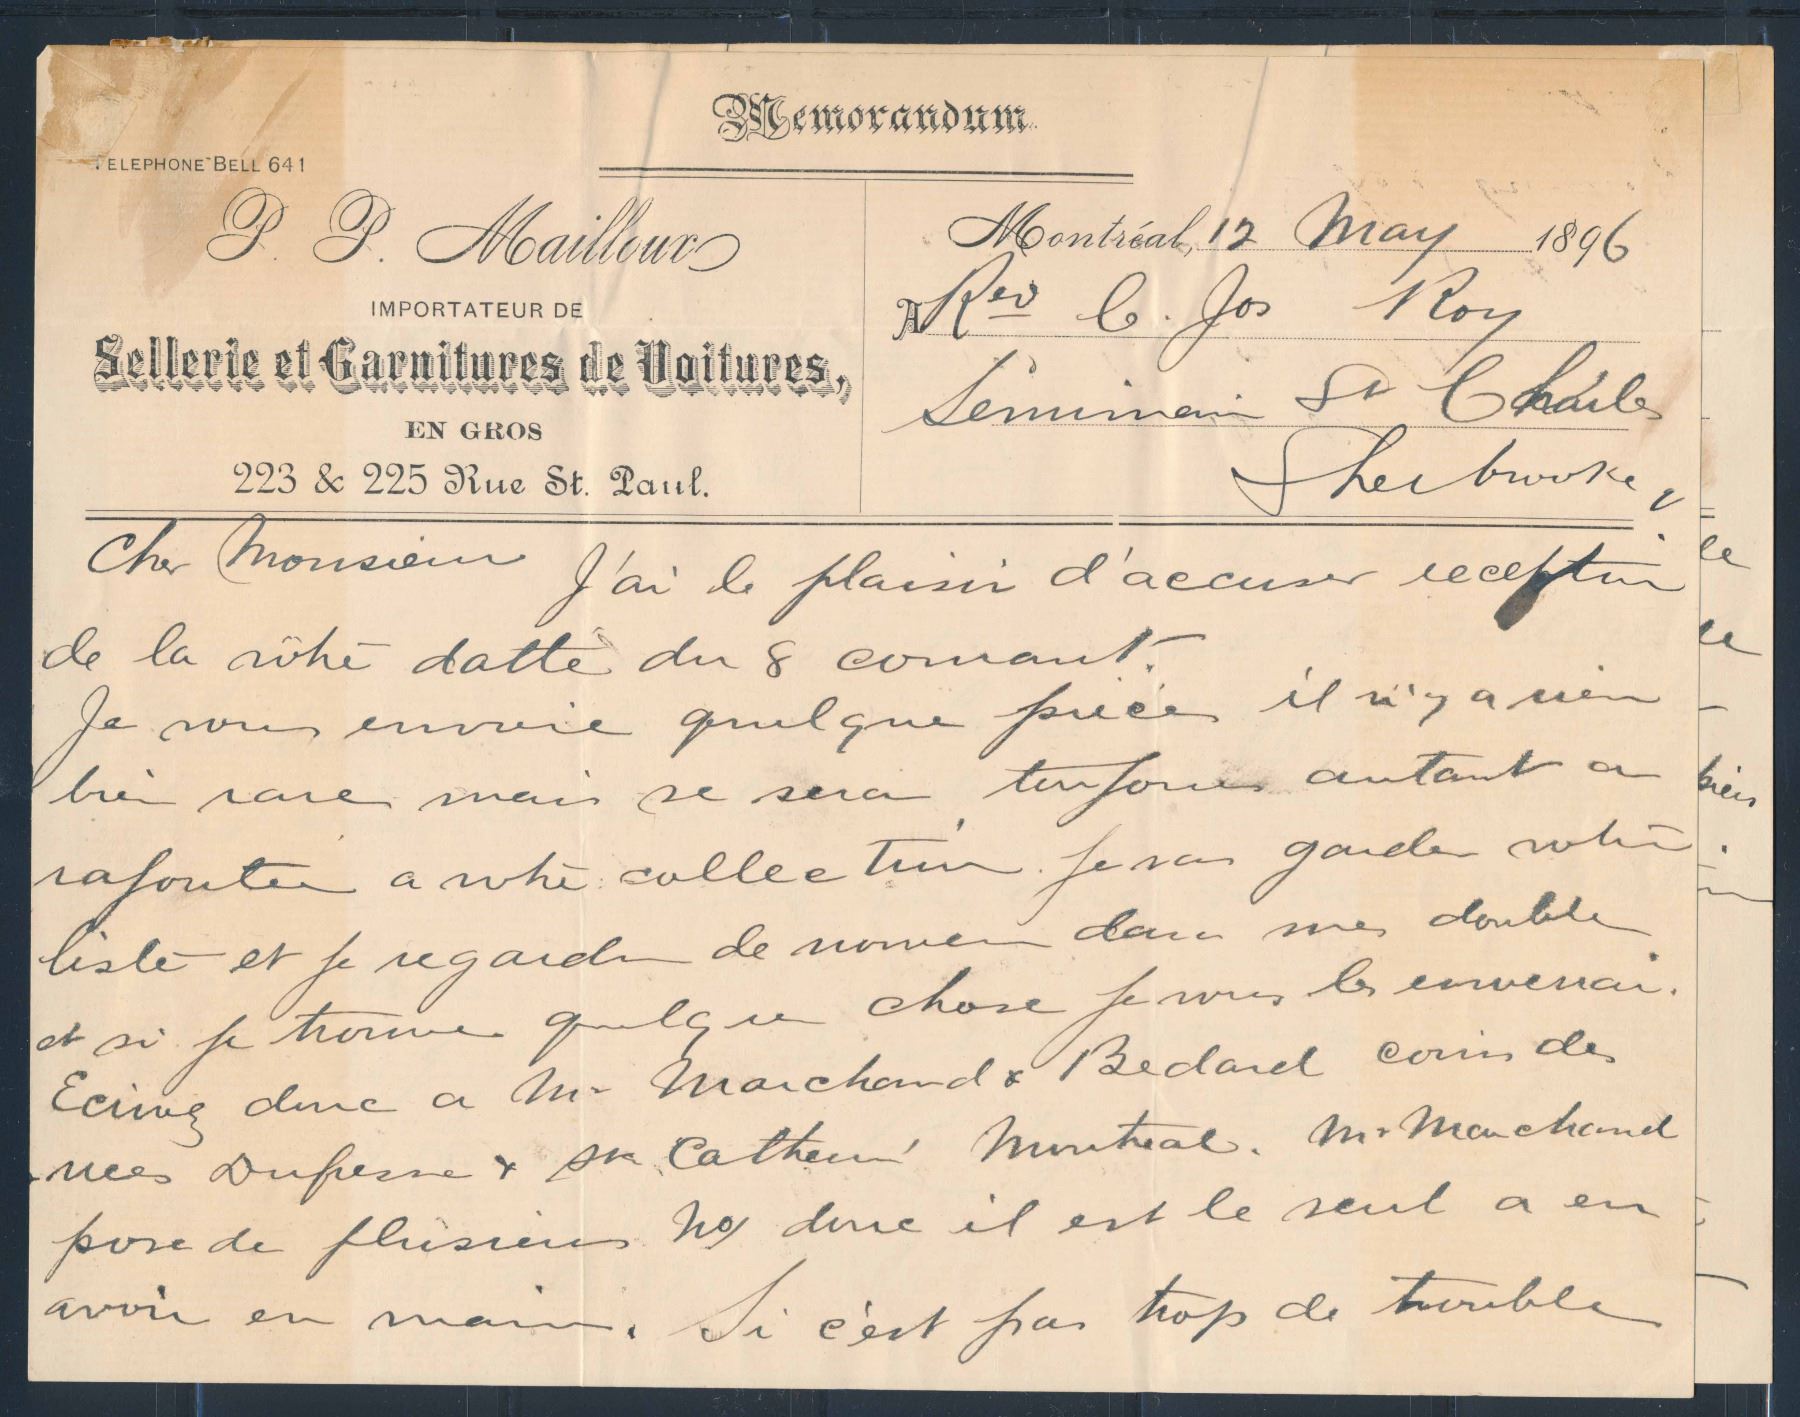 Memorandum
TELEPHONE BELL 641
P. P. Mailloux
IMPORTATEUR DE
Sellerie et Garnitures de Voitures,
EN GROS
223 & 225 Rue St. Paul.
Montréal, 12 May 1896
A Rev C. Jos Roy
Seminair St Charles
Sherbrooke, q
Cher Monsieur J'ai le plaisir d'accuser reception
de la vôtre datté du 8 courant.
Je vous envoie quelque pièces il n'y a rien
bien rares mais se sera toujours autant a
rajoutée a votre collection. Je vas garder votre
liste et je regarder de nouveau dans mes double
et si je trouve quelque chose je vous les enverrai.
Ecrivez donc a Mr Marchand & Bedard coin des
rues Dufresne & Ste Catherine Montreal. Mr Marchand
posede plusieurs Nos donc il est le seul a en
avoir en mains. Si c'est pas trop de trouble